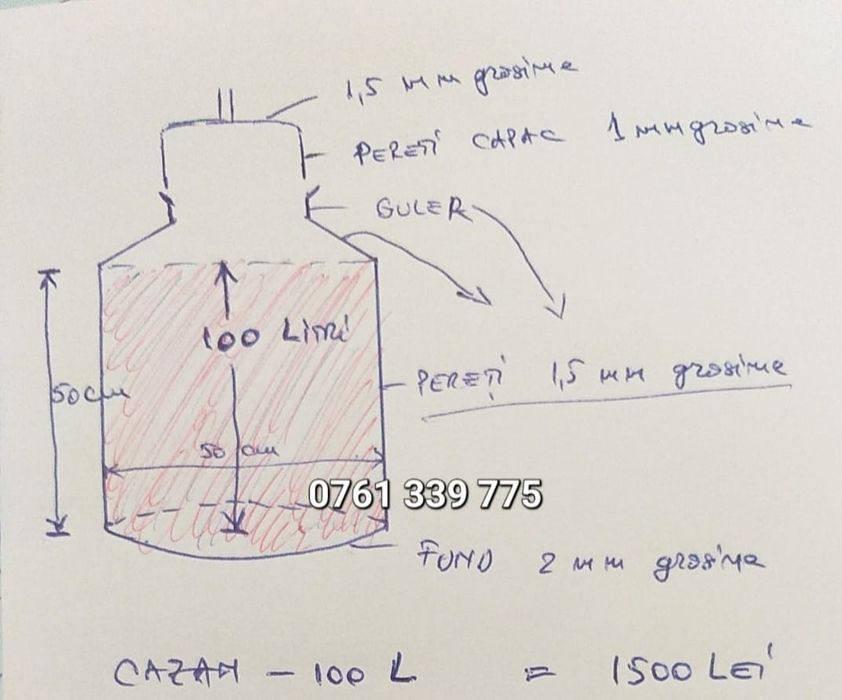 1,5 mm grosime
PEREȚI CAPAC 1 mm grosime
GULER
100 Litri
50 cm
PEREȚI 1,5 mm grosime
50 cm
0761 339 775
FUND 2 mm grosime
CAZAN - 100 L = 1500 LEI